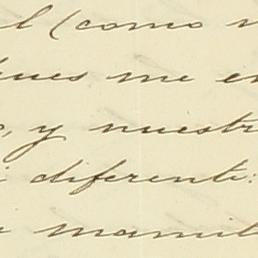 l (como
pues me en
, y nuestr
i diferente:
a mamit